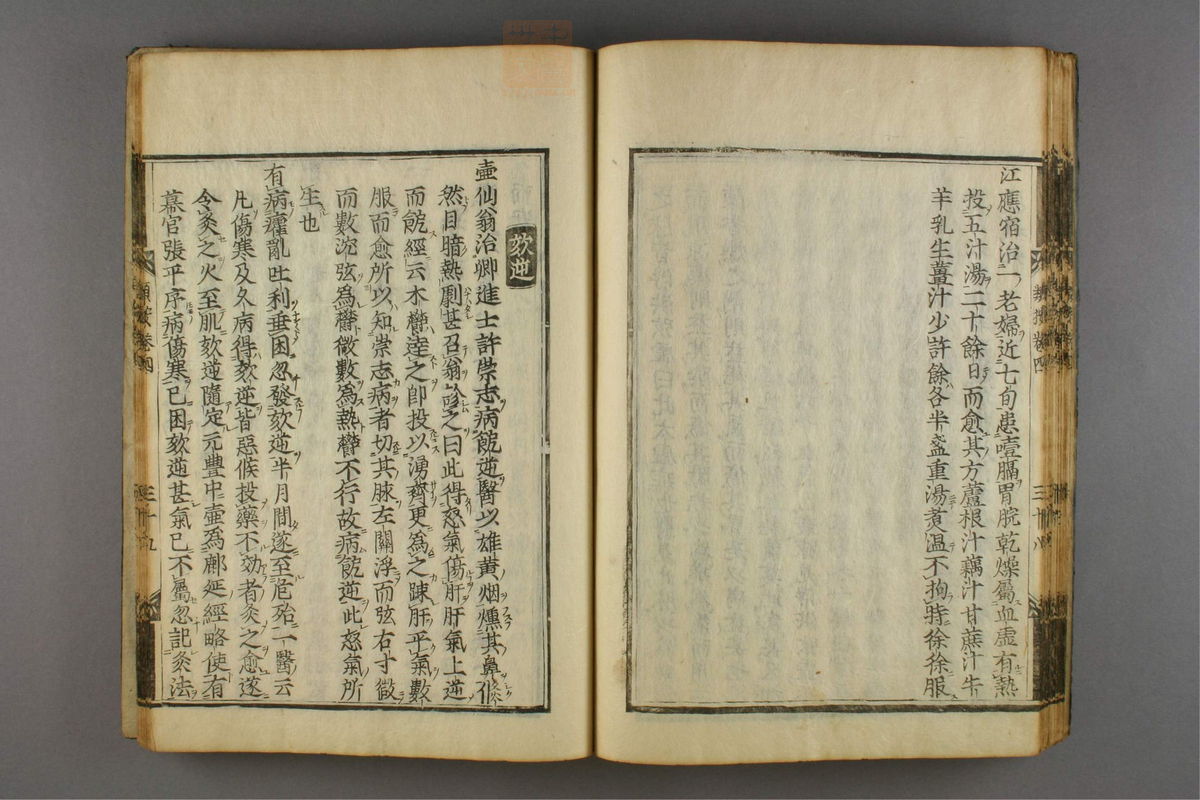 江應宿治一老婦近七旬患噎膈胃脘乾燥屬血虛有熱
投五汁湯二十餘日而愈其方蘆根汁藕汁甘蔗汁牛
羊乳生薑汁少許餘各半盞重湯煮溫不拘時徐徐服
三十八
欬逆
壺仙翁治鄉進士許崇志病餩逆醫以雄黃烟燻其鼻倏
然目暗熱劇甚召翁診之曰此得怒氣傷肝肝氣上逆
而餩經云木欝達之卽投以湧齊更爲之疎肝平氣數
服而愈所以知崇志病者切其脉左關浮而弦右寸微
而數沉弦爲欝微數爲熱欝不行故病餩逆此怒氣所
生也
有病癨亂吐利垂困忽發欬逆半月間遂至危殆一醫云
凡傷寒及久病得欬逆皆惡候投藥不効者灸之愈遂
令灸之火至肌欬逆隨定元豊中壺爲鄜延經略使有
幕官張平序病傷寒已困欬逆甚氣已不屬忽記灸法
類按卷四
三十九